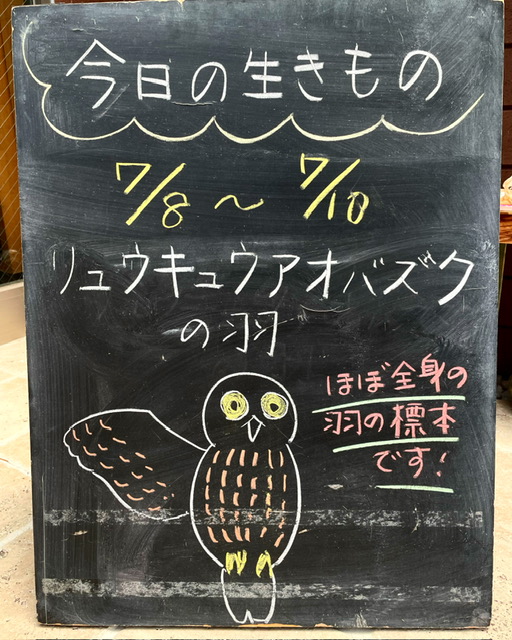 今日の生きもの
7/8～7/10
リュウキュウアオバズク
の羽
ほぼ全身の
羽の標本
です!